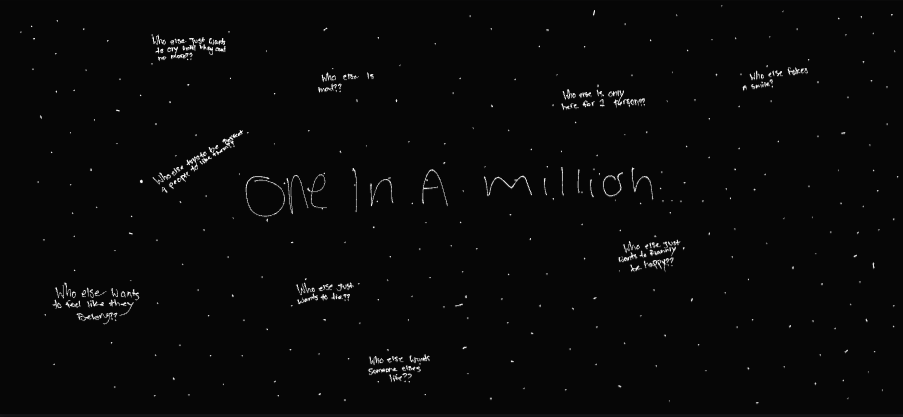 Who else Just wants
to cry until they can
no more??
Who else is
mad??
Who else is only
here for 1 Person??
Who else fakes
A smile?
Who else trys to be
4 people to like them??
One In A million...
Who else Just
wants to
be happy??
Who else wants
to feel like they
Belong??
Who else Just
wants to die??
Who else wants
Someone elses
life??